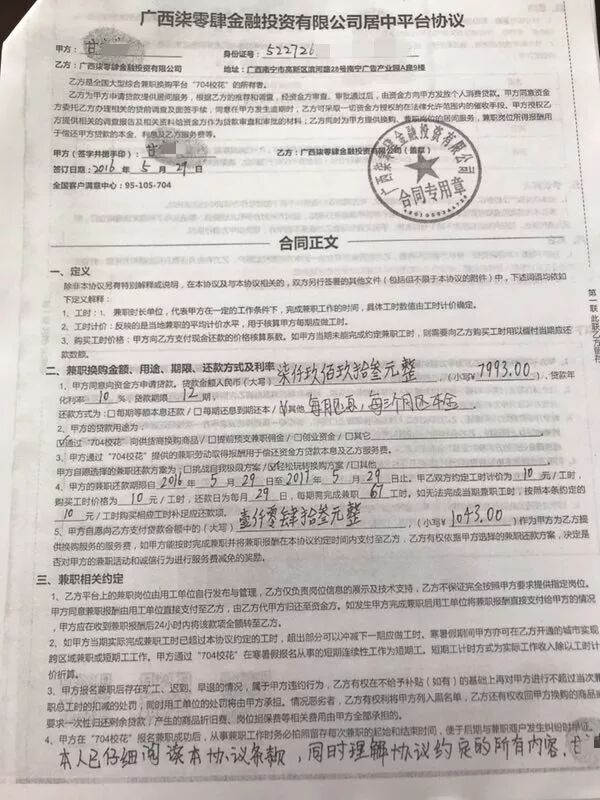 广西柒零肆金融投资有限公司居中平台协议
甲方：甘
身份证号：522726
乙方：广西柒零肆金融投资有限公司 地址：广西南宁市高新区滨河路28号南宁广告产业园A座9楼
乙方是全国大型综合兼职换购平台“704校花”的所有者。
乙方为甲方申请贷款提供居间服务，根据乙方的推荐和调查，经资金方审查、审批通过后，由资金方向甲方发放个人消费贷款。甲方同意资金
方委托乙方办理相关的贷前调查及面签手续，同意在甲方发生逾期时，乙方可采取一切资金方授权的在法律允许范围内的催收手段。甲方授权乙
方提供相关的调查报告及相关资料给资金方作为贷款审查和审批的材料；乙方同时为甲方提供换购、兼职岗位的居间服务，兼职岗位所得报酬用
于偿还甲方贷款的本金、利息及乙方服务费等。
甲方（签字并摁手印）：甘
乙方：广西柒零肆金融投资有限公司（盖章）
签订日期：2016 年 5 月 29 日
全国客户满意中心：95-105-704
广西柒零肆金融投资有限公司
合同专用章
合同正文
一、定义
除非本协议另有特别解释或说明，在本协议及与本协议相关的，双方另行签署的其他文件（包括但不限于本协议的附件）中，下述词语均依如
下定义解释：
1、工时：1. 兼职时长单位，代表甲方在一定的工作条件下，完成兼职工作的时间，具体工时数值由工时计价确定。
2、工时计价：反映的是当地兼职的平均计价水平，用于核算甲方每期应做工时。
3、购买工时价格：甲方向乙方支付现金还款的价格核算系数。如甲方当期未能完成约定兼职工时，则需要向乙方购买工时用以偿付当期应还
款数额。
二、兼职换购金额、用途、期限、还款方式及利率
1、甲方同意向资金方申请贷款。贷款金额人民币（大写）柒仟玖佰玖拾叁元整（小写￥7993.00），贷款年
化利率 10 %，贷款期限 12 期，
还款方式为：□每期等额本息还款/□每期还息到期还本/☑其他 每月还息，每三个月还本金
2、甲方的贷款用途为：
☑通过“704校花”向供货商换购商品/□提前预支兼职佣金/□创业资金/□其它
3、甲方通过“704校花”提供的兼职劳动取得报酬用于偿还资金方贷款本息及乙方服务费。
甲方自愿选择的兼职还款方案为：□挑战自我极限方案/☑轻松玩转换购方案/□其他
4、甲方的兼职还款期自 2016 年 5 月 29 日至 2017 年 5 月 29 日止。甲乙双方约定工时计价为 10 元/工时，
购买工时价格为 10 元/工时，还款日为每月 29 日，每期需完成兼职 67 工时。如无法完成当期兼职工时，按照本条约定的
10 元/工时购买相应工时补足应还款项。
5、甲方自愿向乙方支付贷款金额中的（大写）壹仟零肆拾叁元整（小写￥1043.00）作为甲方为乙方提
供换购服务的服务费，如甲方能按时完成兼职并将兼职报酬在本协议约定时间内支付至乙方，乙方有权依据甲方选择的兼职还款方案，决定是
否对甲方的兼职活动和诚信行为进行服务费减免的奖励。
三、兼职相关约定
1、乙方平台上的兼职岗位由用工单位自行发布与管理，乙方仅负责岗位信息的展示及技术支持，乙方不保证完全按照甲方要求提供指定岗位。
甲方同意兼职报酬由用工单位直接支付至乙方，由乙方代甲方归还至资金方。如发生甲方完成兼职后用工单位将兼职报酬直接支付给甲方的情况
，甲方应在收到兼职报酬后24小时内将该款项全额转至乙方。
2、如甲方当期实际完成兼职工时已超过本协议约定的工时，超出部分可以冲减下一期应做工时。寒暑假期间甲方亦可在乙方开通的城市实现
跨区域兼职或短期工工作。甲方通过“704校花”在寒暑假报名从事的短期连续性工作为短期工。短期工计时方式为实际工作收入除以工时计
价折算。
3、甲方报名兼职后存在旷工、迟到、早退的情况，属于甲方违约行为，乙方有权在不给予补贴（如有）的基础上再对甲方进行不超过当次兼
职总工时的扣减的处罚，同时用工单位的处罚将由甲方承担。情况恶劣者，乙方有权利将甲方列入黑名单，乙方还有权收回甲方换购的商品或
要求一次性归还剩余贷款，产生的商品折旧费、岗位担保费等相关费用由甲方全部承担。
4、甲方在“704校花”报名兼职成功后，从事兼职工作时务必拍照留存每次兼职的起始和结束时间，便于后期与兼职商户发生纠纷时举证。
本人已仔细阅读本协议条款，同时理解协议约定的所有内容。甘
第一联 此联乙方留存